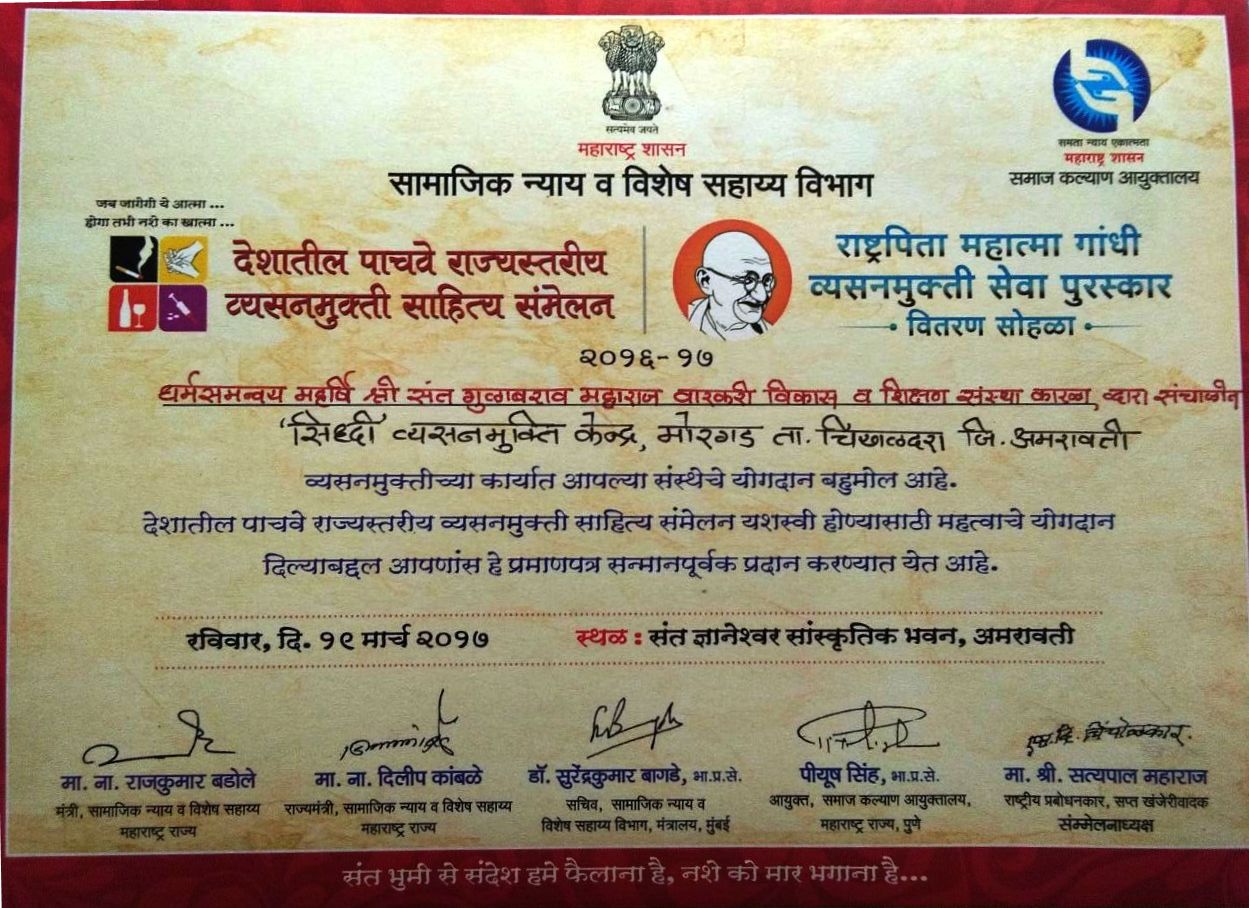 सत्यमेव जयते
महाराष्ट्र शासन
सामाजिक न्याय व विशेष सहाय्य विभाग
समता न्याय एकात्मता
महाराष्ट्र शासन
समाज कल्याण आयुक्तालय
जब जागेगी ये आत्मा ...
होगा तभी नशे का खात्मा ...
देशातील पाचवे राज्यस्तरीय
व्यसनमुक्ती साहित्य संमेलन
राष्ट्रपिता महात्मा गांधी
व्यसनमुक्ती सेवा पुरस्कार
वितरण सोहळा
२०१६-१७
धर्मसमन्वय महर्षि श्री संत गुळाबराव महाराज वारकरी विकास व शिक्षण संस्था कारळा, द्वारा संचालीत
'सिध्दी' व्यसनमुक्ति केन्द्र, मोरगड ता. चिखळदरा जि. अमरावती
व्यसनमुक्तीच्या कार्यात आपल्या संस्थेचे योगदान बहुमोल आहे.
देशातील पाचवे राज्यस्तरीय व्यसनमुक्ती साहित्य संमेलन यशस्वी होण्यासाठी महत्वाचे योगदान
दिल्याबद्दल आपणांस हे प्रमाणपत्र सन्मानपूर्वक प्रदान करण्यात येत आहे.
रविवार, दि. १९ मार्च २०१७ स्थळ : संत ज्ञानेश्वर सांस्कृतिक भवन, अमरावती
मा. ना. राजकुमार बडोले
मंत्री, सामाजिक न्याय व विशेष सहाय्य
महाराष्ट्र राज्य
मा. ना. दिलीप कांबळे
राज्यमंत्री, सामाजिक न्याय व विशेष सहाय्य
महाराष्ट्र राज्य
डॉ. सुरेंद्रकुमार बागडे, भा.प्र.से.
सचिव, सामाजिक न्याय व
विशेष सहाय्य विभाग, मंत्रालय, मुंबई
पीयूष सिंह, भा.प्र.से.
आयुक्त, समाज कल्याण आयुक्तालय,
महाराष्ट्र राज्य, पुणे
मा. श्री. सत्यपाल महाराज
राष्ट्रीय प्रबोधनकार, सप्त खंजेरीवादक
संम्मेलनाध्यक्ष
संत भुमी से संदेश हमे फैलाना है, नशे को मार भगाना है...